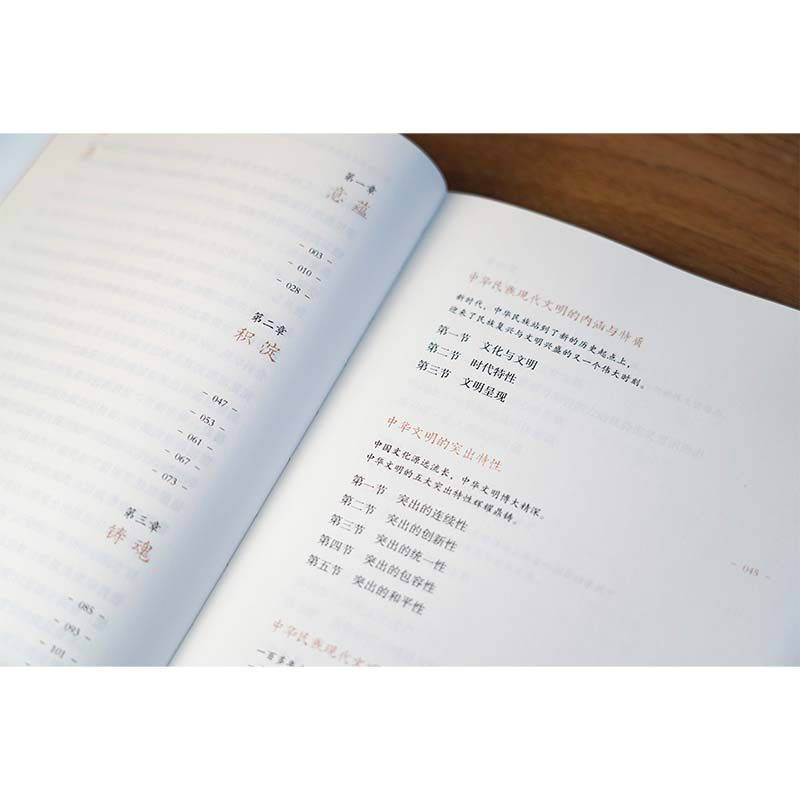 第一章
意蕴
- 003 -
- 010 -
- 028 -
第二章
积淀
- 047 -
- 053 -
- 061 -
- 067 -
- 073 -
第三章
铸魂
- 085 -
- 093 -
- 101 -
中华民族现代文明的内涵与特质
新时代，中华民族站到了新的历史起点上，
迎来了民族复兴与文明兴盛的又一个伟大时刻。
第一节 文化与文明
第二节 时代特性
第三节 文明呈现
- 045 -
中华文明的突出特性
中国文化源远流长，中华文明博大精深。
中华文明的五大突出特性辉耀鼎铸。
第一节 突出的连续性
第二节 突出的创新性
第三节 突出的统一性
第四节 突出的包容性
第五节 突出的和平性
中华民族现代文
一百多年